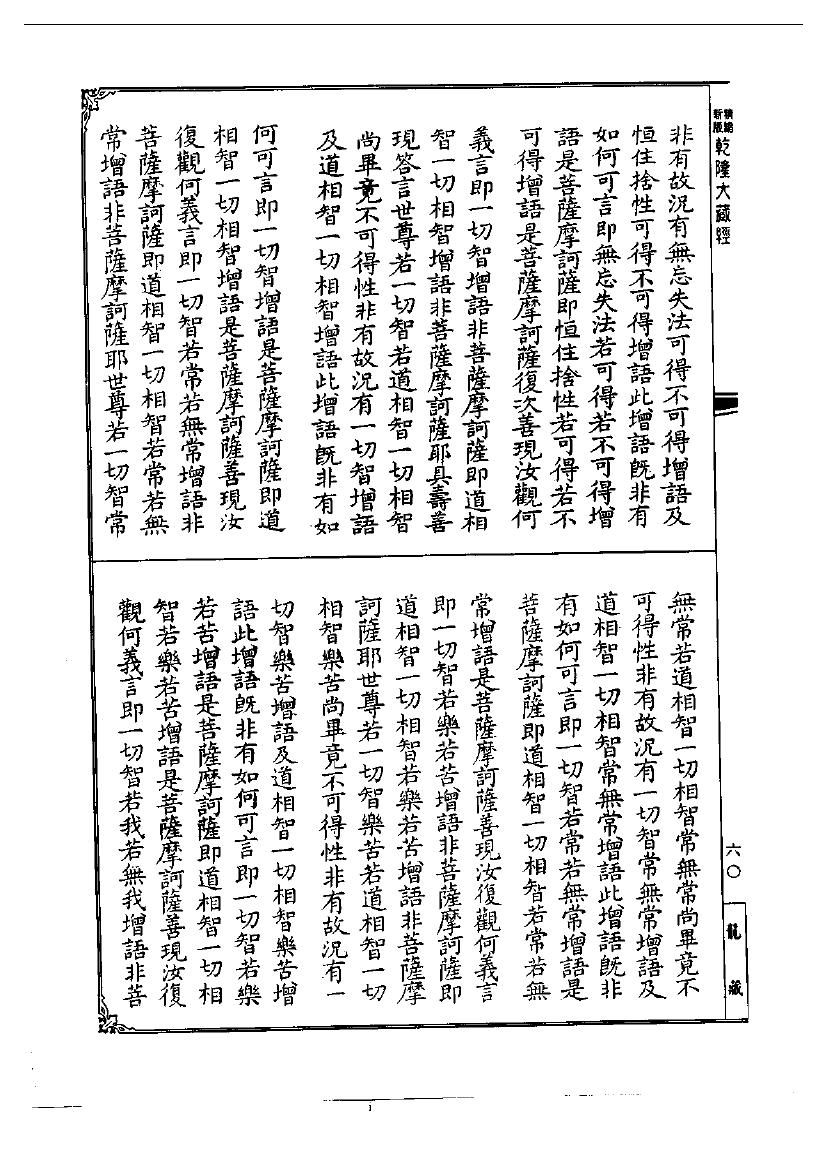 新版
精縮
乾隆大藏經
六〇
龍藏
非有故況有無忘失法可得不可得增語及
恒住捨性可得不可得增語此增語既非有
如何可言即無忘失法若可得若不可得增
語是菩薩摩訶薩即恒住捨性若可得若不
可得增語是菩薩摩訶薩復次善現汝觀何
義言即一切智增語非菩薩摩訶薩即道相
智一切相智增語非菩薩摩訶薩耶具壽善
現答言世尊若一切智若道相智一切相智
尚畢竟不可得性非有故況有一切智增語
及道相智一切相智增語此增語既非有如
何可言即一切智增語是菩薩摩訶薩即道
相智一切相智增語是菩薩摩訶薩善現汝
復觀何義言即一切智若常若無常增語非
菩薩摩訶薩即道相智一切相智若常若無
常增語非菩薩摩訶薩耶世尊若一切智常
無常若道相智一切相智常無常尚畢竟不
可得性非有故況有一切智常無常增語及
道相智一切相智常無常增語此增語既非
有如何可言即一切智若常若無常增語是
菩薩摩訶薩即道相智一切相智若常若無
常增語是菩薩摩訶薩善現汝復觀何義言
即一切智若樂若苦增語非菩薩摩訶薩即
道相智一切相智若樂若苦增語非菩薩摩
訶薩耶世尊若一切智樂苦若道相智一切
相智樂苦尚畢竟不可得性非有故況有一
切智樂苦增語及道相智一切相智樂苦增
語此增語既非有如何可言即一切智若樂
若苦增語是菩薩摩訶薩即道相智一切相
智若樂若苦增語是菩薩摩訶薩善現汝復
觀何義言即一切智若我若無我增語非菩
1